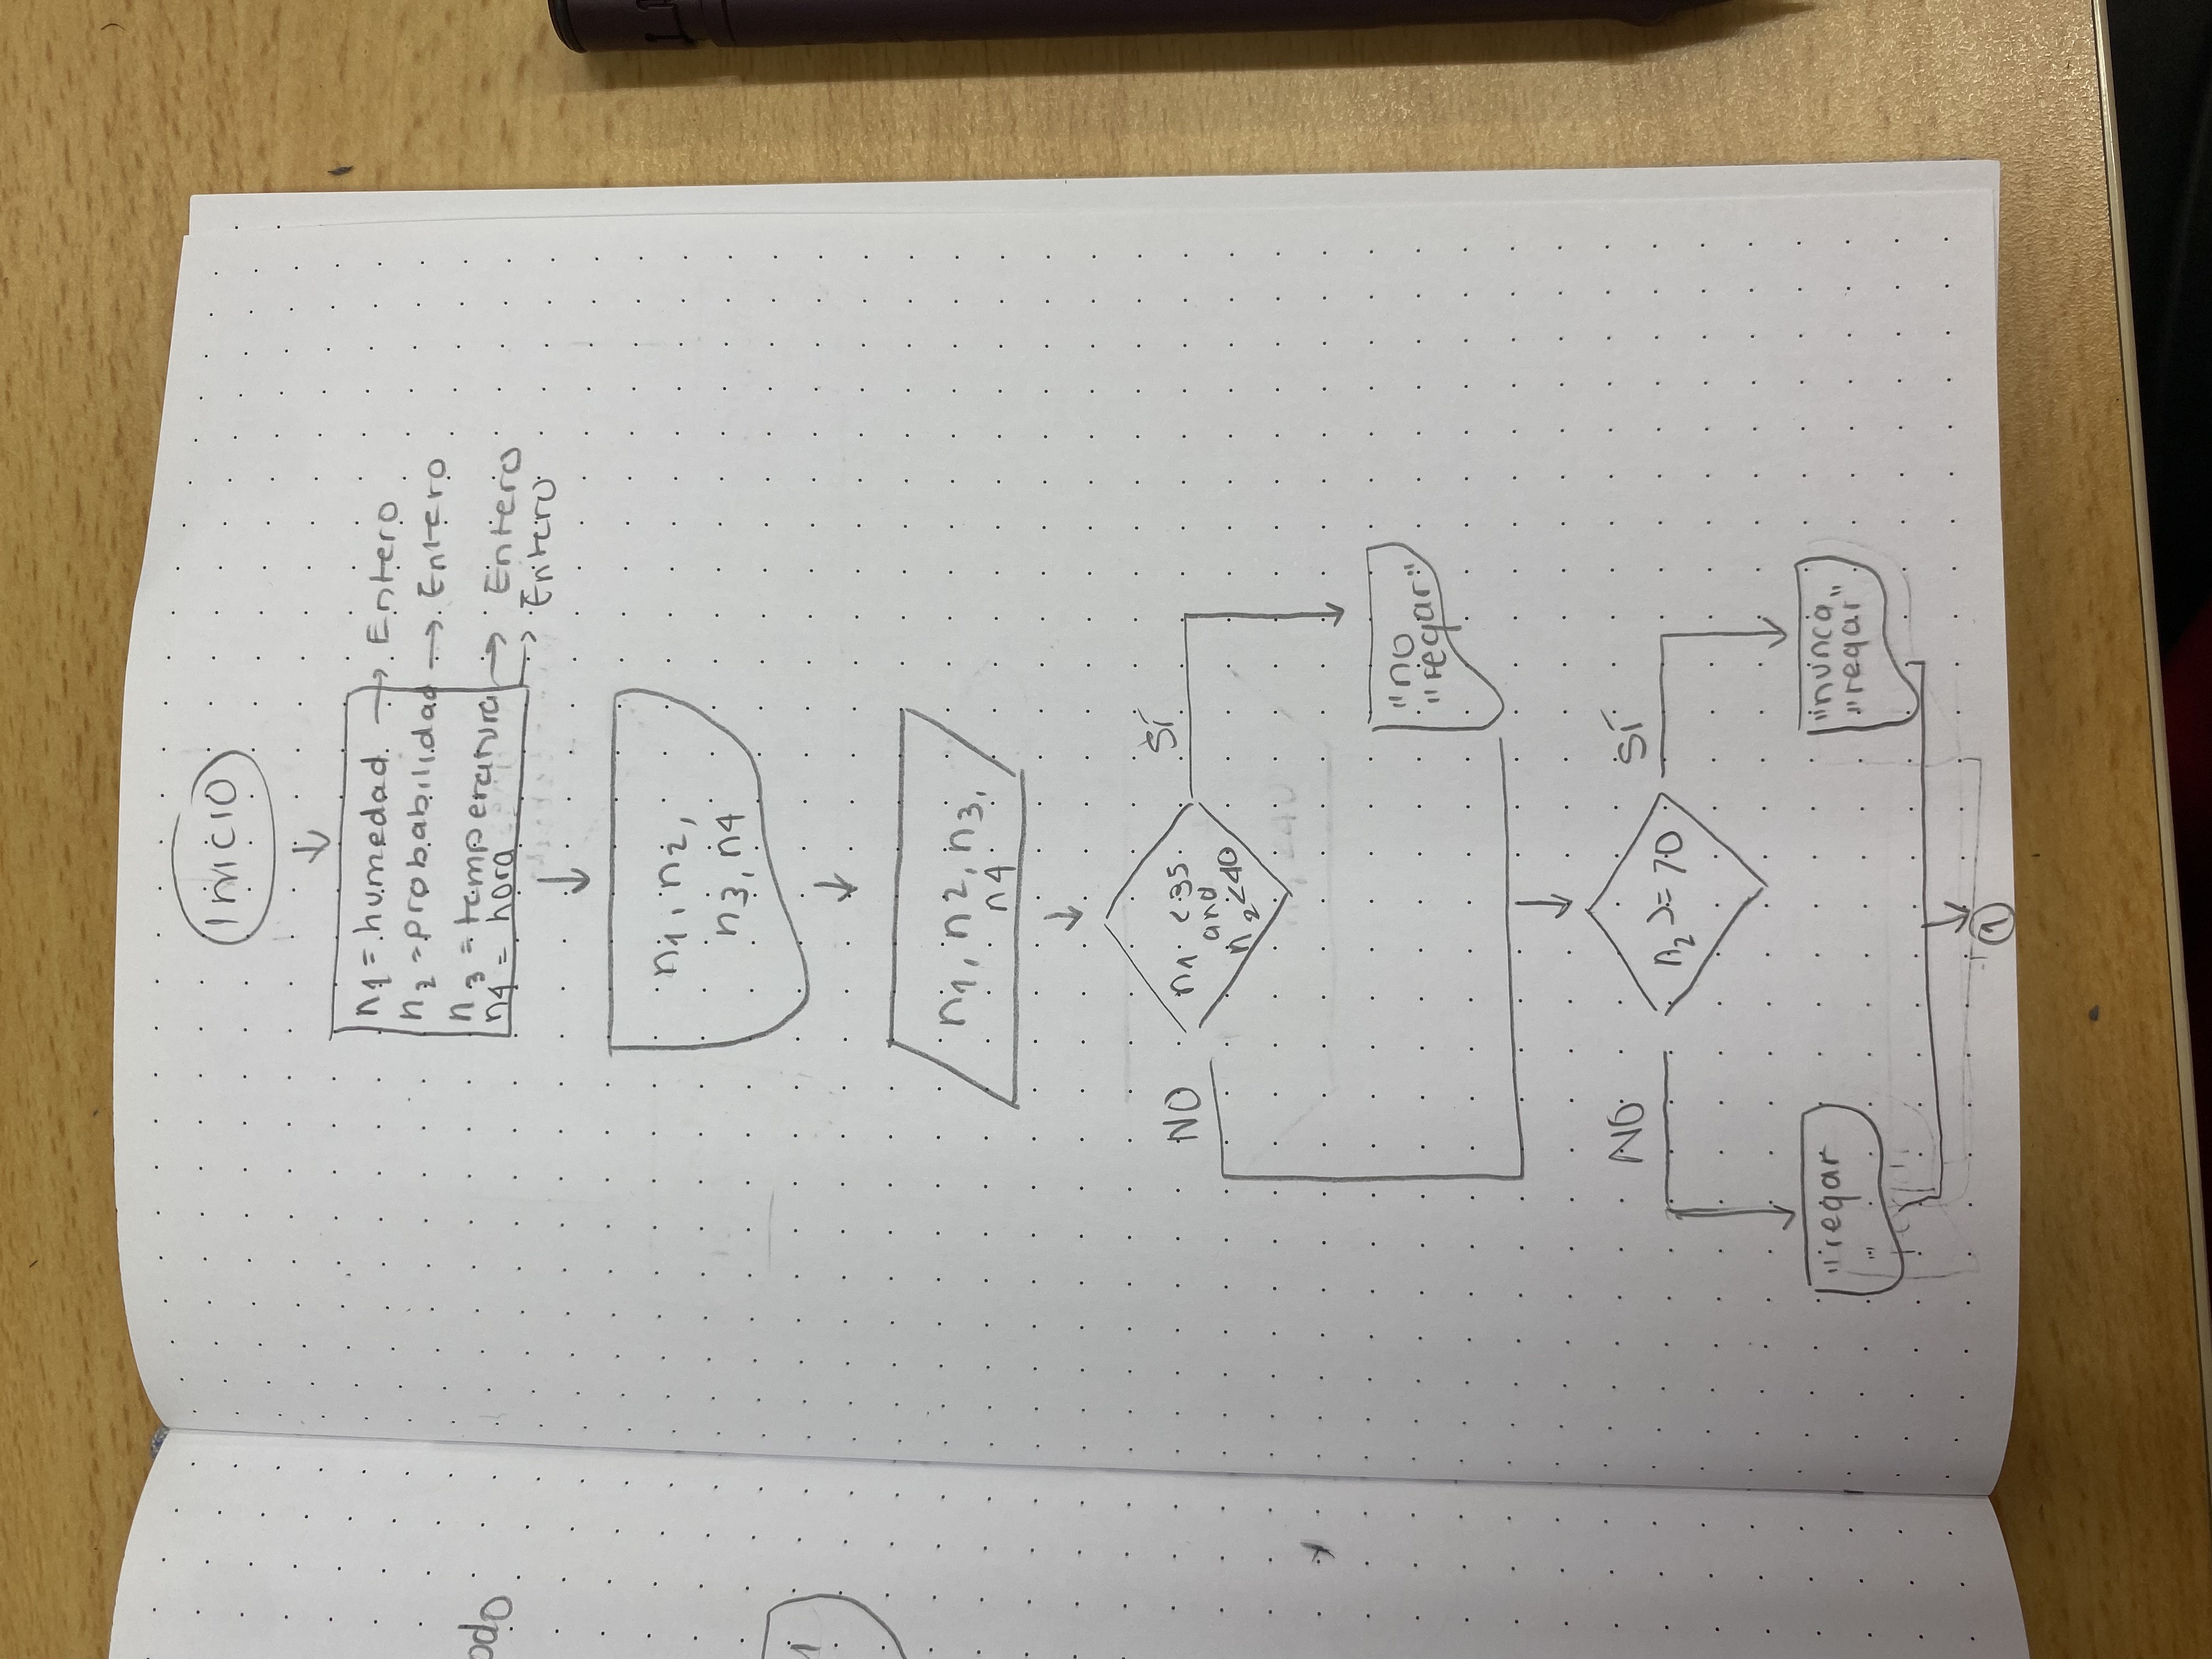 INICIO
n1 = humedad → Entero
n2 = probabilidad → Entero
n3 = temperatura → Entero
n4 = hora → Entero
odo
n1, n2,
n3, n4
1
n1, n2, n3,
n4
NO
n1 <35
and
n2 <40
SÍ
"no
"regar"
NO
n2 >= 70
SÍ
"regar
"
"nunca
"regar"
1